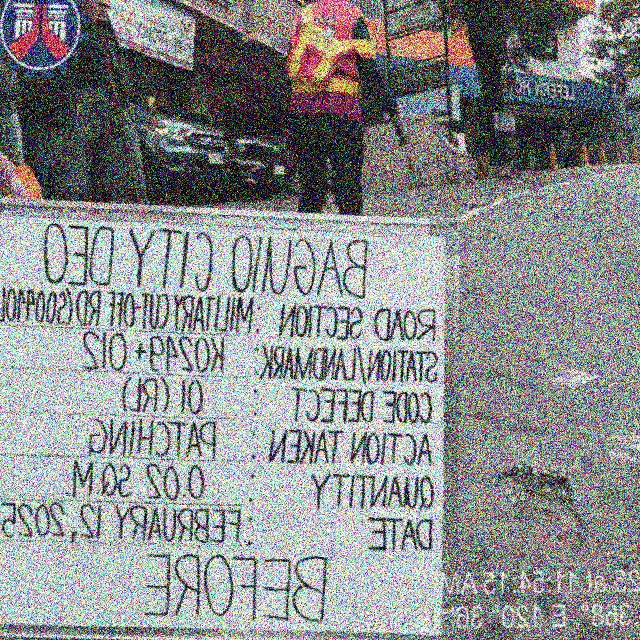 BAGUIO CITY DEO
ROAD SECTION : MILITARY CUT-OFF RD
STATION/LANDMARK : K0249+012
CODE DEFECT : 01 (RL)
ACTION TAKEN : PATCHING
QUANTITY : 0.02 SQ.M.
DATE : FEBRUARY 12, 2025
BEFORE
at 11:54:15 AM
E 120° 36'